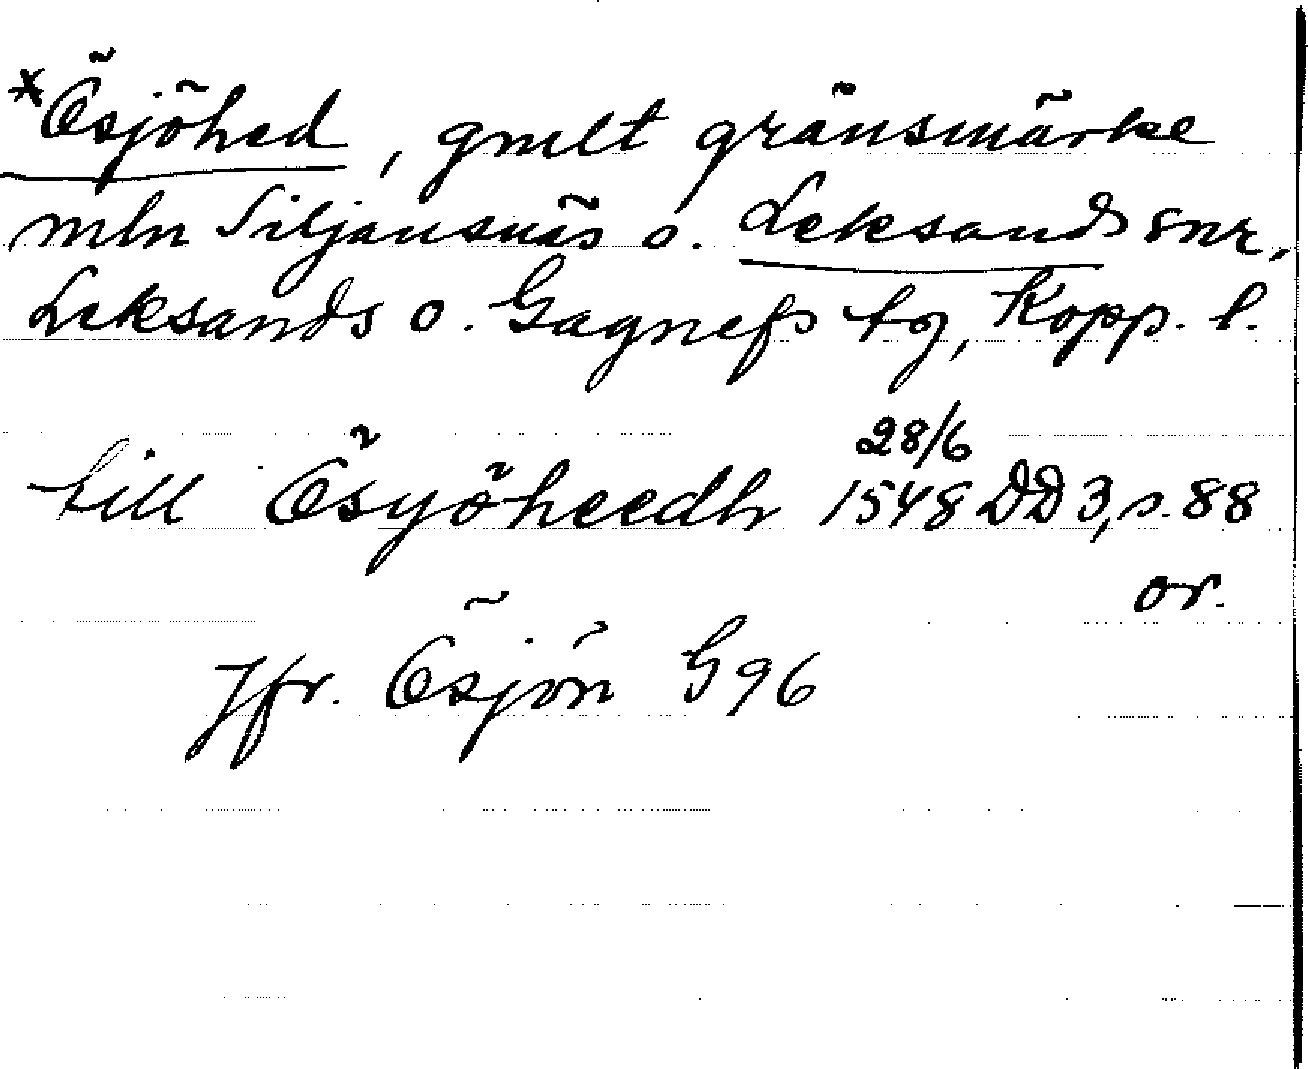 *Ösjöhed, gmlt gränsmärke
mln Siljansnäs o. Leksands snr,
Leksands o. Gagnefs tg, Kopp. l.
till Ösyöheedh 28/6 1548 DD 3, s. 88
or.
Jfr. Ösjön G96